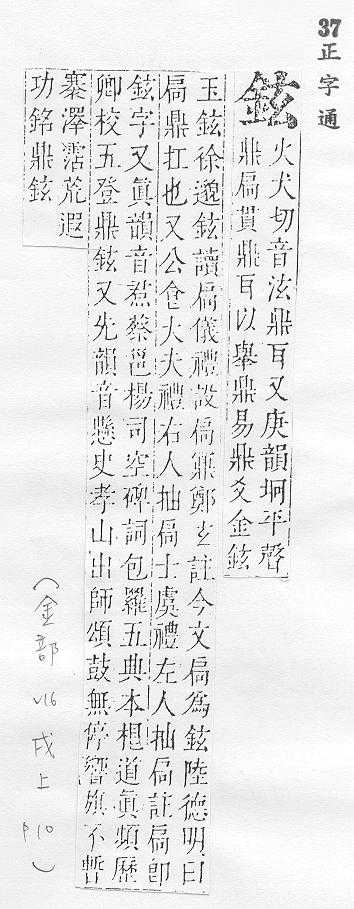 37正字通
鉉
火犬切音泫鼎耳又庚韻坰平聲
鼎扃貫鼎耳以舉鼎易鼎爻金鉉
玉鉉徐邈鉉讀扃儀禮設扃鼏鄭玄註今文扃爲鉉陸德明曰
扃鼎扛也又公食大夫禮右人抽扃士虞禮左人抽扃註扃即
鉉字又眞韻音恭蔡邕楊司空碑詞包羅五典本想道眞頻歷
卿校五登鼎鉉又先韻音懸史孝山出師頌鼓無停響旗不暫
褰澤霑荒遐
功銘鼎鉉
(金部 v16 戌上 p10)